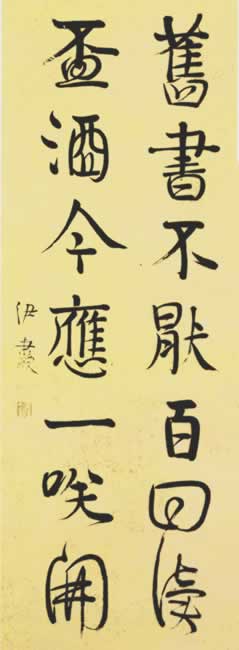 舊書不猒百回讀
盃酒今應一咲開
伊秉綬